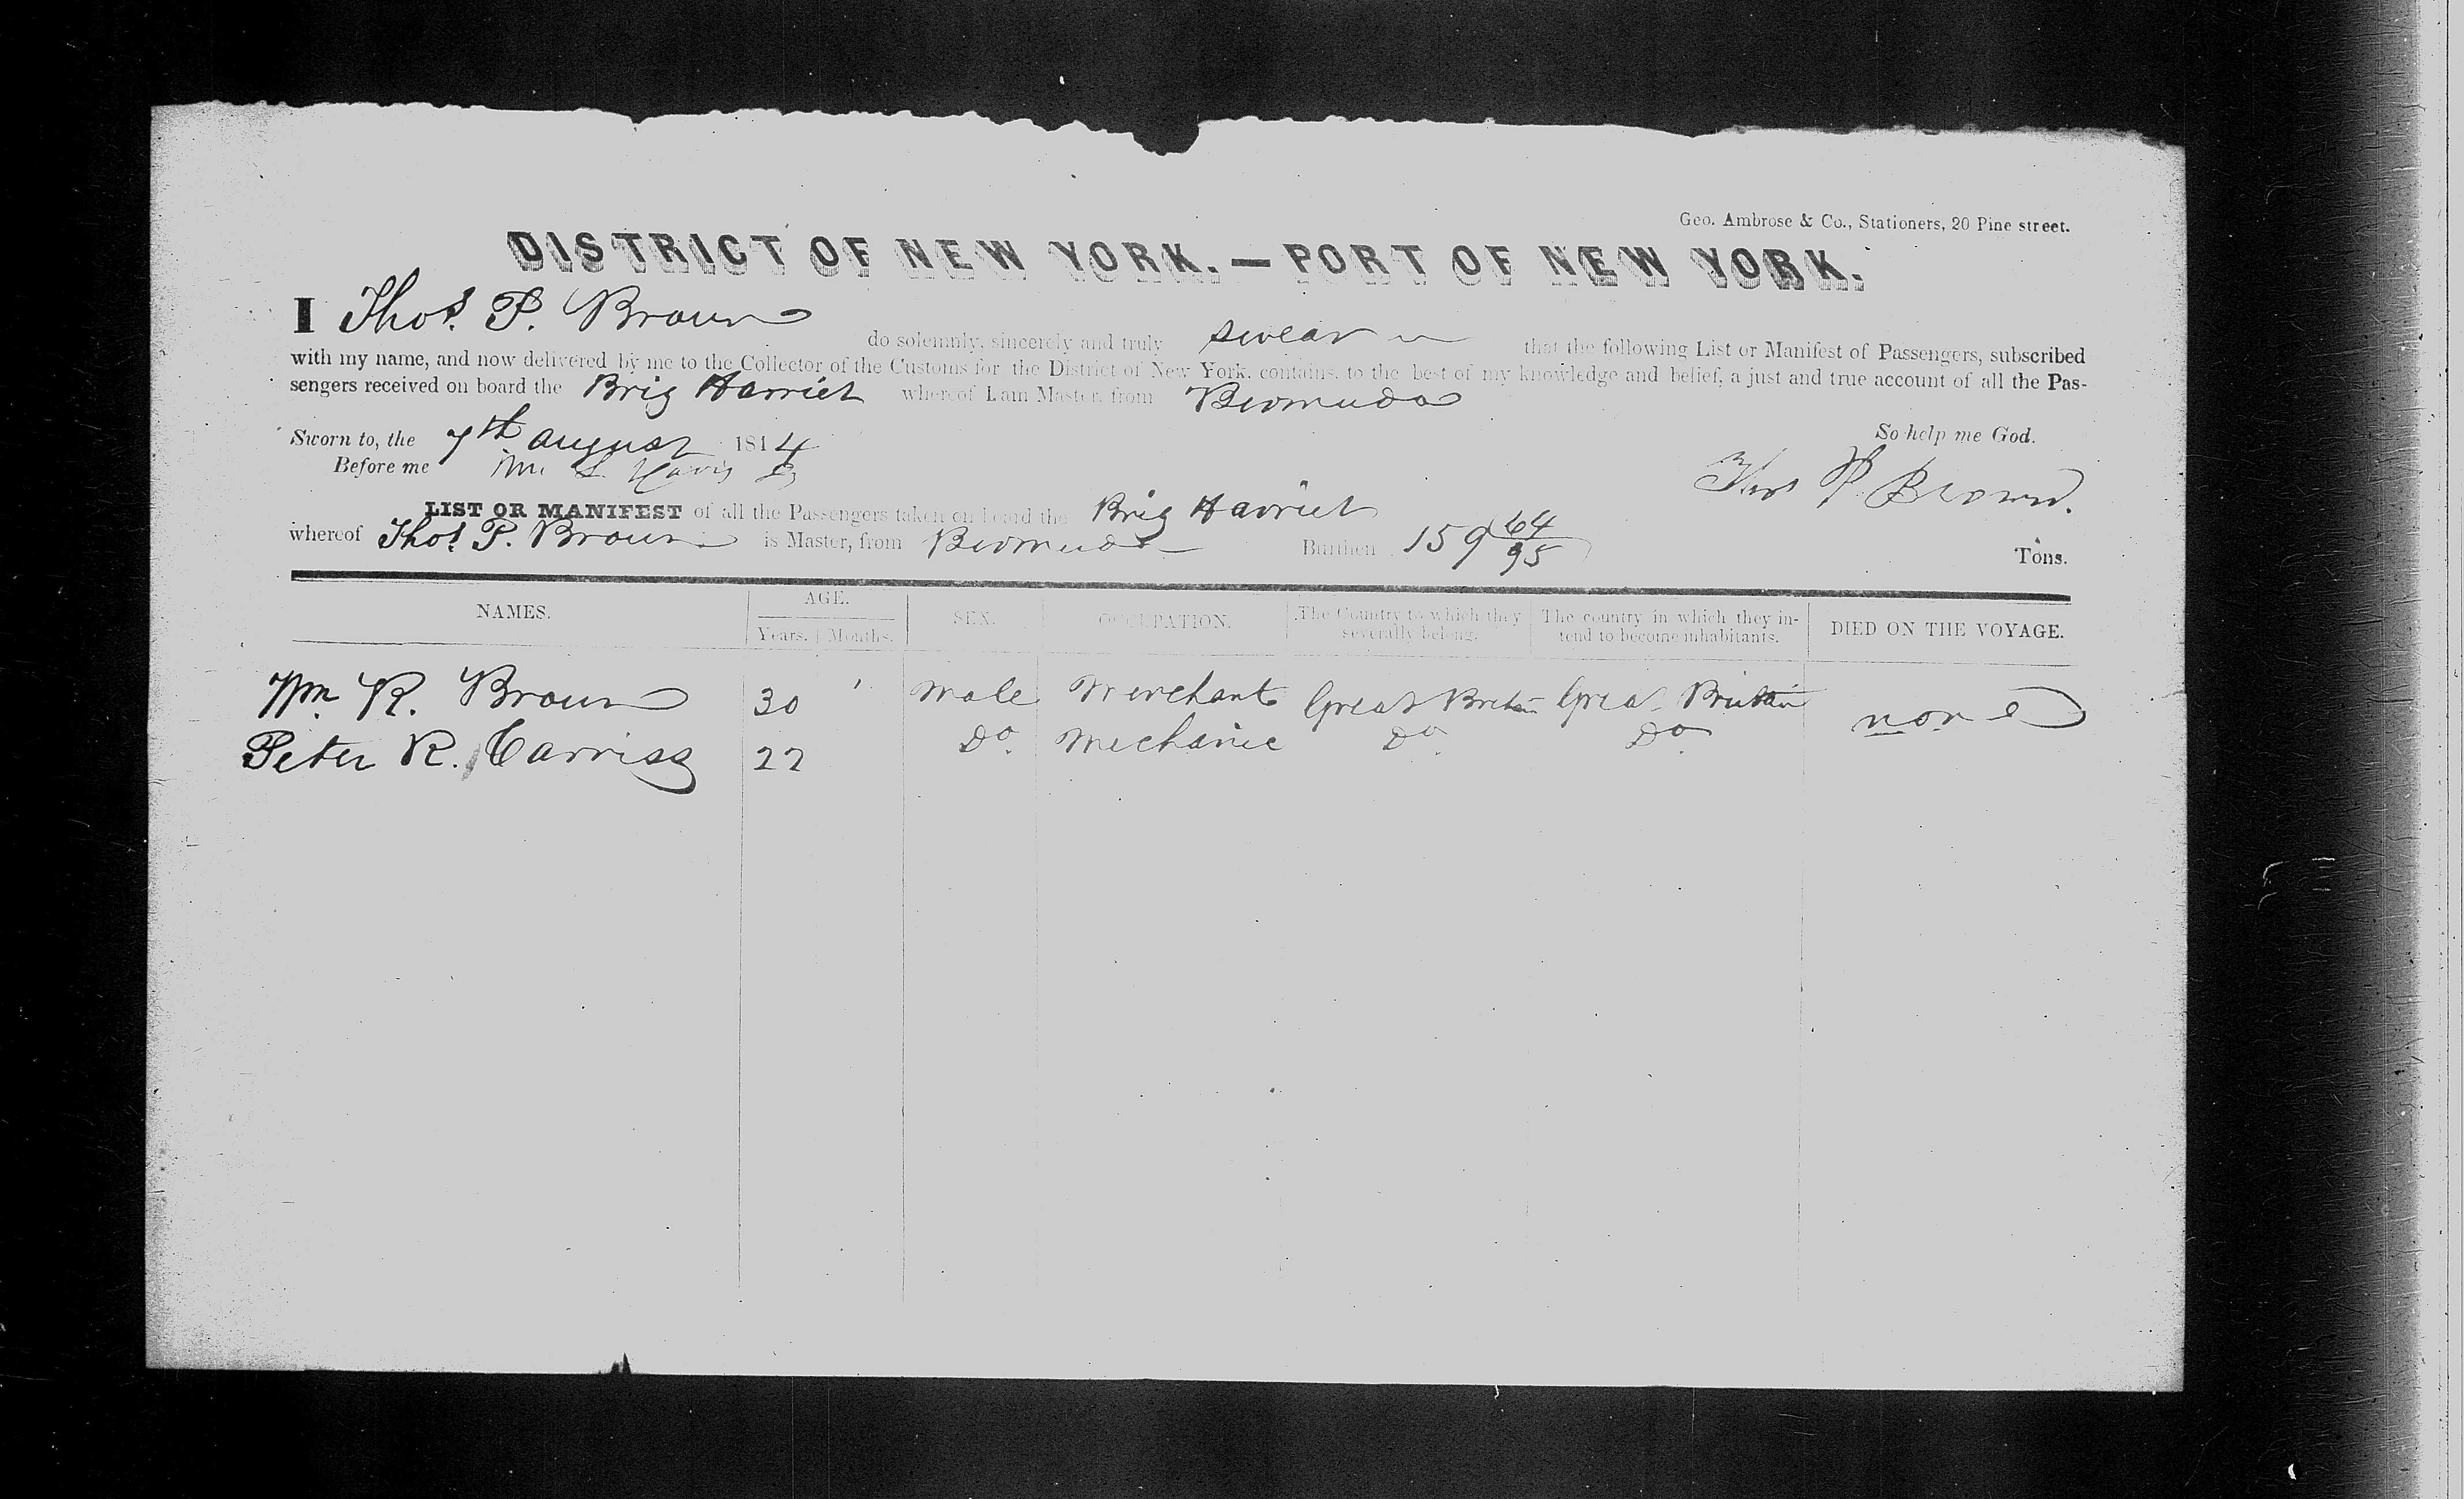 Geo. Ambrose & Co., Stationers, 20 Pine street.
DISTRICT OF NEW YORK.—PORT OF NEW YORK.
I Thos. P. Brown do solemnly, sincerely and truly swear that the following List or Manifest of Passengers, subscribed
with my name, and now delivered by me to the Collector of the Customs for the District of New York, contains, to the best of my knowledge and belief, a just and true account of all the Pas-
sengers received on board the Brig Harriet whereof I am Master, from Bermuda
So help me God.
Sworn to, the 7th August 1844
Before me
Thos P. Brown.
LIST OR MANIFEST of all the Passengers taken on board the Brig Harriet
whereof Thos. P. Brown is Master, from Bermuda Burthen 159 64/95 Tons.
NAMES. AGE. SEX. OCCUPATION. The Country to which they The country in which they in- DIED ON THE VOYAGE.
Years. Months. severally belong. tend to become inhabitants.
Wm R. Brown 30 Male Merchant Great Britain Great Britain none
Peter R. Carriss 22 Do. Mechanic Do Do